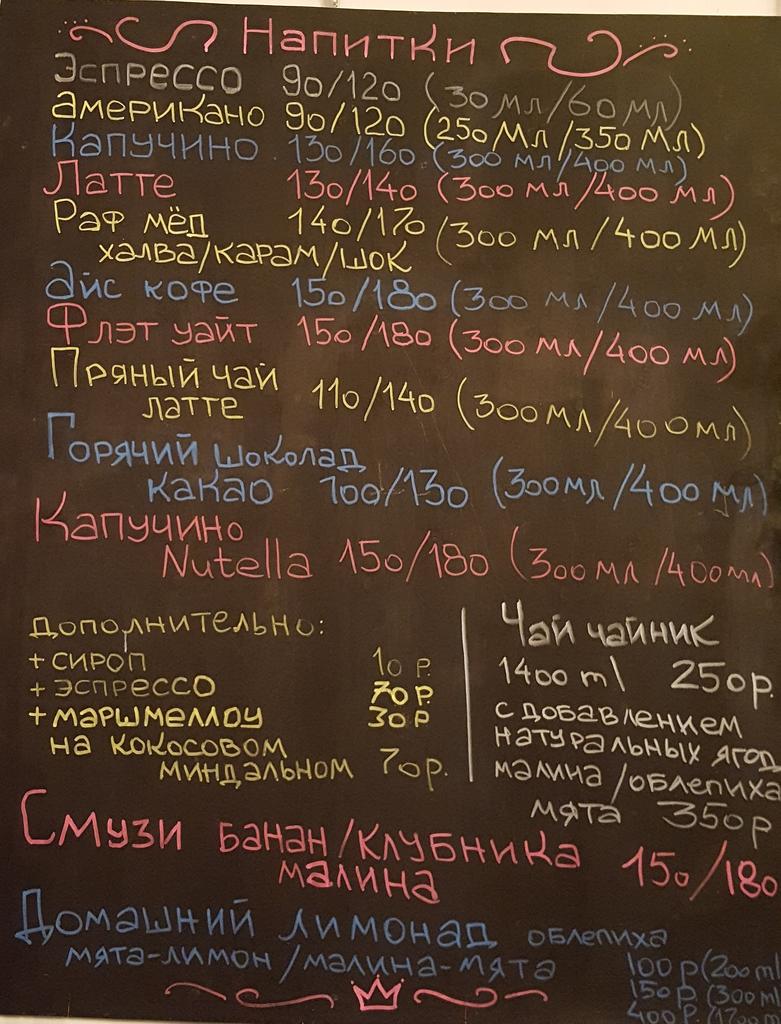 Напитки
Эспрессо 90/120 (30 мл/60 мл)
Американо 90/120 (250 мл/350 мл)
Капучино 130/160 (300 мл/400 мл)
Латте 130/140 (300 мл/400 мл)
Раф мёд 140/170 (300 мл/400 мл)
халва/карам/шок
Айс кофе 150/180 (300 мл/400 мл)
Флэт уайт 150/180 (300 мл/400 мл)
Пряный чай
латте 110/140 (300мл/400мл)
Горячий шоколад
какао 100/130 (300мл/400 мл)
Капучино
Nutella 150/180 (300 мл/400мл)
Дополнительно:
+ сироп 10 р.
+ эспрессо 70 р.
+ маршмеллоу 30 р
на кокосовом
миндальном 70р.
Чай чайник
1400 ml 250р.
с добавлением
натуральных ягод
малина/облепиха
мята 350р
Смузи банан/клубника
малина 150/180
Домашний лимонад облепиха
мята-лимон/малина-мята
100 р (200 ml
150 р. (300 ml
400 р. (1700 m